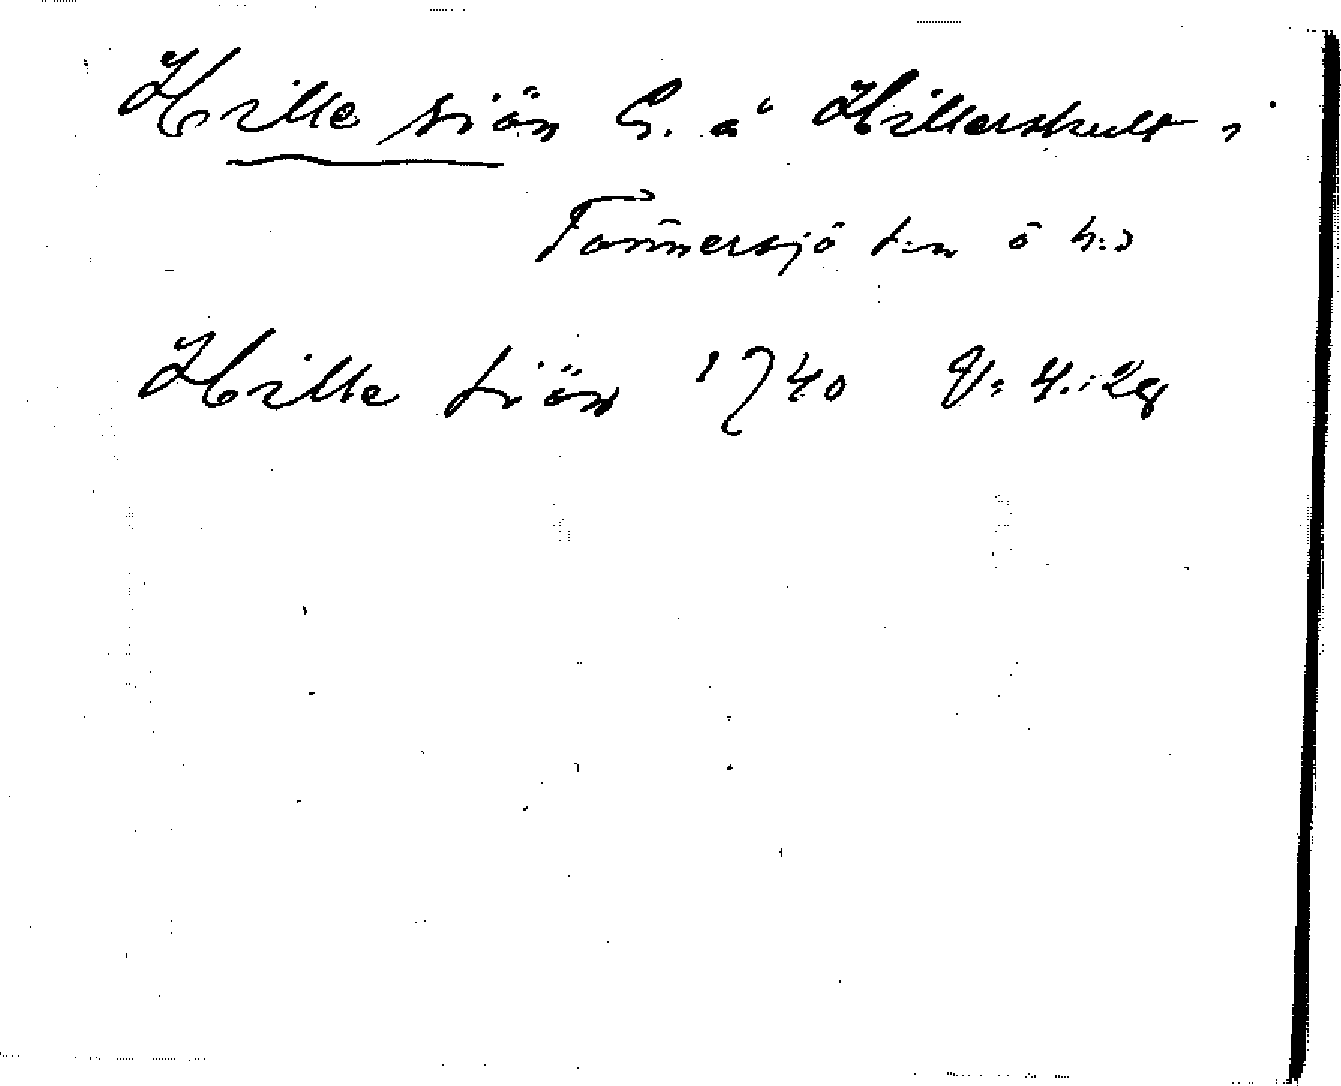 Hille siön G. å Hillerskult i
Tönnersjö s:n ö h:d
Hille siön 1740 V: 4:28